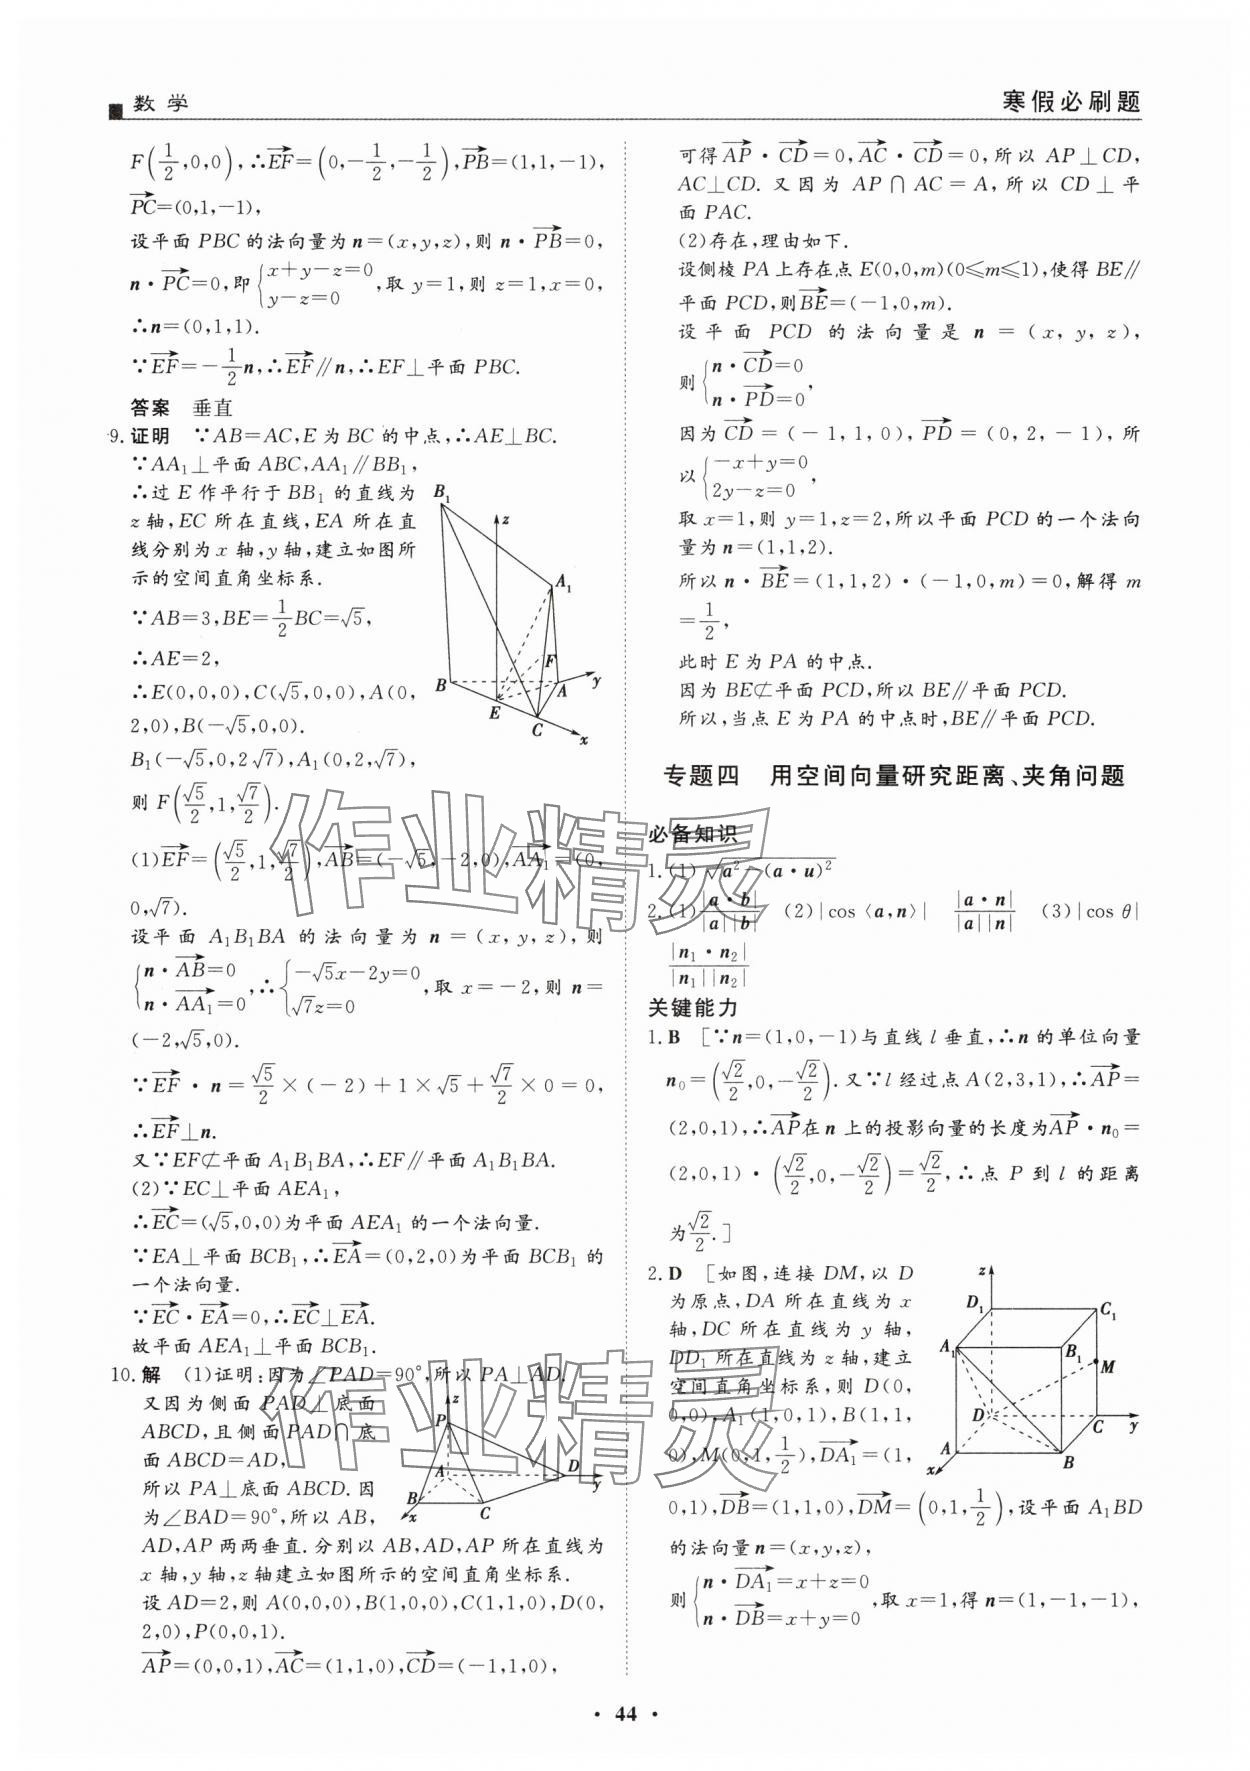 数学
寒假必刷题
F(1/2,0,0),∴EF→=(0,-1/2,-1/2),PB→=(1,1,-1),
PC→=(0,1,-1),
设平面 PBC 的法向量为 n=(x,y,z),则 n·PB→=0,
n·PC→=0,即{x+y-z=0 y-z=0,取 y=1,则 z=1,x=0,
∴n=(0,1,1).
∵EF→=-1/2n,∴EF→∥n,∴EF⊥平面 PBC.
答案 垂直
9.证明 ∵AB=AC,E 为 BC 的中点,∴AE⊥BC.
∵AA₁⊥平面 ABC,AA₁∥BB₁,
∴过 E 作平行于 BB₁ 的直线为
z 轴,EC 所在直线,EA 所在直
线分别为 x 轴,y 轴,建立如图所
示的空间直角坐标系.
∵AB=3,BE=1/2BC=√5,
∴AE=2,
∴E(0,0,0),C(√5,0,0),A(0,
2,0),B(-√5,0,0).
B₁(-√5,0,2√7),A₁(0,2,√7),
则 F(√5/2,1,√7/2).
B₁
z
A₁
F
B
A
y
E
C
x
(1)EF→=(√5/2,1,√7/2),AB→=(-√5,-2,0),AA₁→=(0,
0,√7).
设平面 A₁B₁BA 的法向量为 n=(x,y,z),则
{n·AB→=0 n·AA₁→=0,∴{-√5x-2y=0 √7z=0,取 x=-2,则 n=
(-2,√5,0).
∵EF→·n=√5/2×(-2)+1×√5+√7/2×0=0,
∴EF→⊥n.
又∵EF⊄平面 A₁B₁BA,∴EF∥平面 A₁B₁BA.
(2)∵EC⊥平面 AEA₁,
∴EC→=(√5,0,0)为平面 AEA₁ 的一个法向量.
∵EA⊥平面 BCB₁,∴EA→=(0,2,0)为平面 BCB₁ 的
一个法向量.
∵EC→·EA→=0,∴EC→⊥EA→.
故平面 AEA₁⊥平面 BCB₁.
10.解 (1)证明:因为∠PAD=90°,所以 PA⊥AD.
又因为侧面 PAD⊥底面
ABCD,且侧面 PAD∩底
面 ABCD=AD,
所以 PA⊥底面 ABCD.因
为∠BAD=90°,所以 AB,
z
P
A
D
y
B
x
C
AD,AP 两两垂直.分别以 AB,AD,AP 所在直线为
x 轴,y 轴,z 轴建立如图所示的空间直角坐标系.
设 AD=2,则 A(0,0,0),B(1,0,0),C(1,1,0),D(0,
2,0),P(0,0,1).
AP→=(0,0,1),AC→=(1,1,0),CD→=(-1,1,0),
可得AP→·CD→=0,AC→·CD→=0,所以 AP⊥CD,
AC⊥CD.又因为 AP∩AC=A,所以 CD⊥平
面 PAC.
(2)存在,理由如下.
设侧棱 PA 上存在点 E(0,0,m)(0≤m≤1),使得 BE∥
平面 PCD,则BE→=(-1,0,m).
设平面 PCD 的法向量是 n=(x,y,z),
则{n·CD→=0 n·PD→=0,
因为CD→=(-1,1,0),PD→=(0,2,-1),所
以{-x+y=0 2y-z=0,
取 x=1,则 y=1,z=2,所以平面 PCD 的一个法向
量为 n=(1,1,2).
所以 n·BE→=(1,1,2)·(-1,0,m)=0,解得 m
=1/2,
此时 E 为 PA 的中点.
因为 BE⊄平面 PCD,所以 BE∥平面 PCD.
所以,当点 E 为 PA 的中点时,BE∥平面 PCD.
专题四 用空间向量研究距离、夹角问题
必备知识
1.(1)√(a²-(a·u)²)
2.(1)|a·b|/|a||b| (2)|cos〈a,n〉| |a·n|/|a||n| (3)|cos θ|
|n₁·n₂|/|n₁||n₂|
关键能力
1.B [∵n=(1,0,-1)与直线 l 垂直,∴n 的单位向量
n₀=(√2/2,0,-√2/2).又∵l 经过点 A(2,3,1),∴AP→=
(2,0,1),∴AP→在 n 上的投影向量的长度为AP→·n₀=
(2,0,1)·(√2/2,0,-√2/2)=√2/2,∴点 P 到 l 的距离
为√2/2.]
2.D [如图,连接 DM,以 D
为原点,DA 所在直线为 x
轴,DC 所在直线为 y 轴,
DD₁ 所在直线为 z 轴,建立
空间直角坐标系,则 D(0,
0,0),A₁(1,0,1),B(1,1,
0),M(0,1,1/2),DA₁→=(1,
z
D₁
C₁
A₁
B₁
M
D
C
y
A
x
B
0,1),DB→=(1,1,0),DM→=(0,1,1/2),设平面 A₁BD
的法向量 n=(x,y,z),
则{n·DA₁→=x+z=0 n·DB→=x+y=0,取 x=1,得 n=(1,-1,-1),
·44·
作业精灵
作业精灵